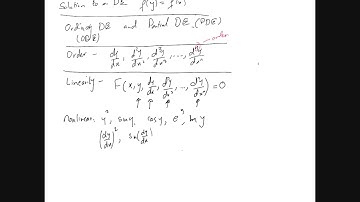 Solution to a DE f(y) = f(x)
Ordinary DE and Partial DE (PDE)
(ODE)
Order - dy/dx, d²y/dx², d³y/dx³, ..., dⁿy/dxⁿ order
Linearity - F(x, y, dy/dx, d²y/dx², ..., dⁿy/dxⁿ) = 0
nonlinear y², siny, cosy, e^y, lny
(dy/dx)², sin(dy/dx)